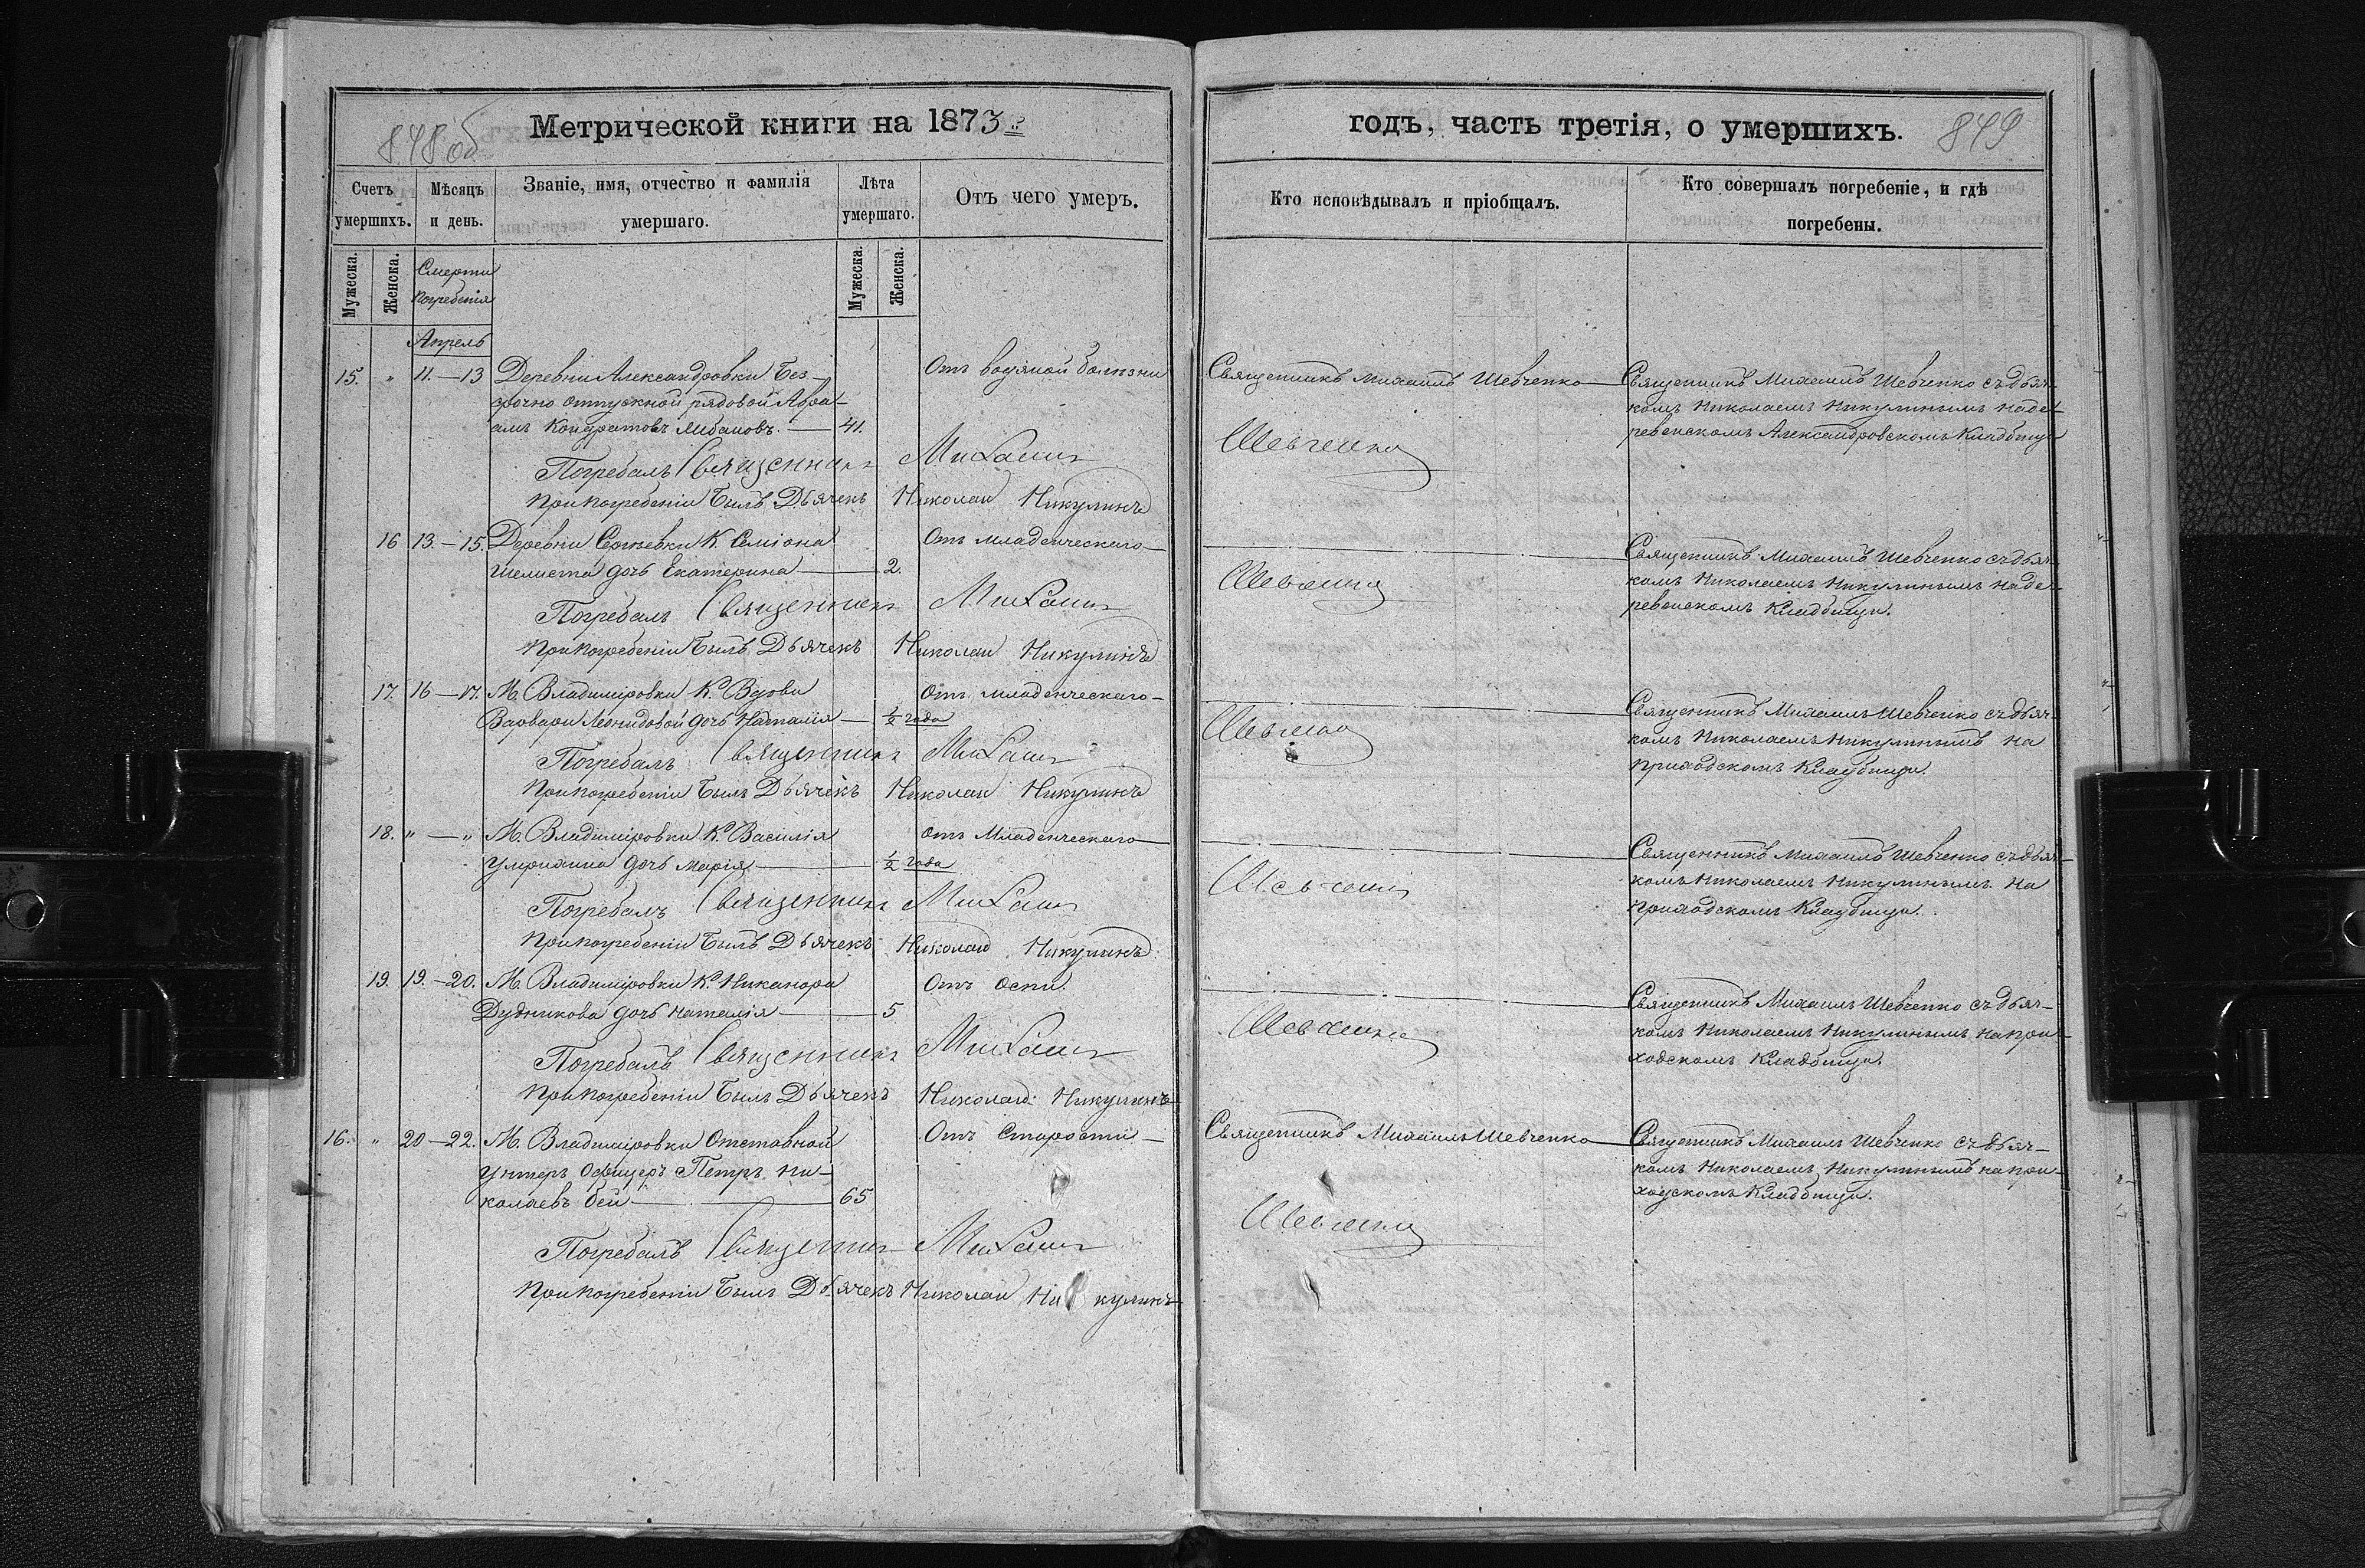 848 об
Метрической книги на 1873 г.
Счетъ умершихъ.
Мѣсяцъ и день.
Званіе, имя, отчество и фамилія умершаго.
Лѣта умершаго.
Отъ чего умеръ.
Мужеска.
Женска.
Смерти
Погребенія
Мужеска.
Женска.
Апрель
15. „ 11.—13 Деревни Александровки Без- Отъ водяной болѣзни
срочно отпускной рядовой Абра-
амъ Кондратовъ Либановъ. — 41.
Погребалъ Священникъ Михаилъ
При погребеніи былъ Дьячекъ Николай Никулинъ
16 13.—15. Деревни Сергѣевки К. Семіона Отъ младенческаго—
Шелиста дочь Екатерина — 2.
Погребалъ Священникъ Михаилъ
При погребеніи былъ Дьячекъ Николай Никулинъ
17. 16—17. М. Владиміровки К. Вдовы Отъ младенческаго—
Варвары Леонидовой дочь Наталія — ½ года
Погребалъ Священникъ Михаилъ
При погребеніи былъ Дьячекъ Николай Никулинъ
18. „ — „ М. Владиміровки К. Василія Отъ Младенческаго
дочь Марія — ½ года
Погребалъ Священникъ Михаилъ
При погребеніи былъ Дьячекъ Николай Никулинъ
19. 19.—20. М. Владиміровки К. Никанора Отъ оспи.
Дудникова дочь Наталія — 5
Погребалъ Священникъ Михаилъ
При погребеніи былъ Дьячекъ Николай Никулинъ
16. „ 20—22. М. Владиміровки Отставной Отъ Старости—
унтеръ Офицеръ Петръ Ни-
колаевъ Бей — 65
Погребалъ Священникъ Михаилъ
При погребеніи былъ Дьячекъ Николай Никулинъ
годъ, часть третія, о умершихъ.
849
Кто исповѣдывалъ и пріобщалъ.
Кто совершалъ погребеніе, и гдѣ погребены.
Священникъ Михаилъ Шевченко — Священникъ Михаилъ Шевченко съ дьяч-
комъ Николаемъ Никулинымъ на де-
ревенскомъ Александровскомъ Кладбищѣ
Шевченко
Священникъ Михаилъ Шевченко съ дьяч-
комъ Николаемъ Никулинымъ на де-
ревенскомъ Кладбищи.
Шевченко
Священникъ Михаилъ Шевченко съ дьяч-
комъ Николаемъ Никулинымъ на
приходскомъ Кладбищи.
Шевченко
Священникъ Михаилъ Шевченко съ дьяч-
комъ Николаемъ Никулинымъ на
приходскомъ Кладбищи.
Шевченко
Священникъ Михаилъ Шевченко съ дьяч-
комъ Николаемъ Никулинымъ на при-
ходскомъ Кладбищи.
Шевченко
Священникъ Михаилъ Шевченко — Священникъ Михаилъ Шевченко съ дьяч-
комъ Николаемъ Никулинымъ на при-
ходскомъ Кладбищи.
Шевченко